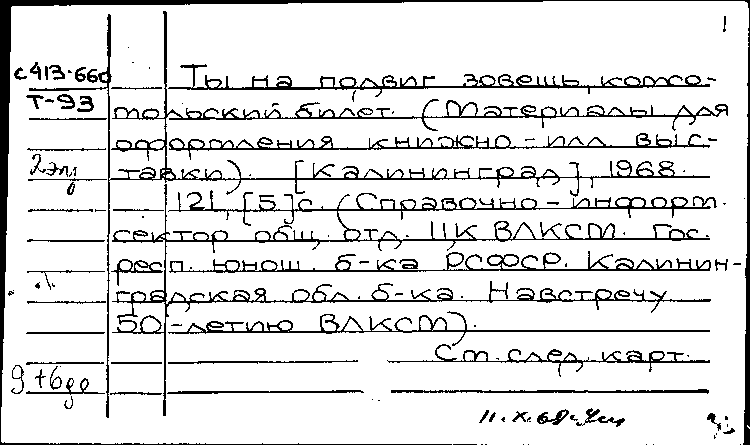 1
с413·660
Т-93
Ты на подвиг зовешь, комсо-
мольский билет. (Материалы для
оформления книжно-илл. выс-
тавки). [Калининград], 1968.
2 экз
121, [5] с. (Справочно-информ.
сектор общ. отд. ЦК ВЛКСМ. Гос.
респ. юнош. б-ка РСФСР. Калинин-
градская обл. б-ка. Навстречу
50-летию ВЛКСМ).
См. след. карт.
9+6
11.X.68